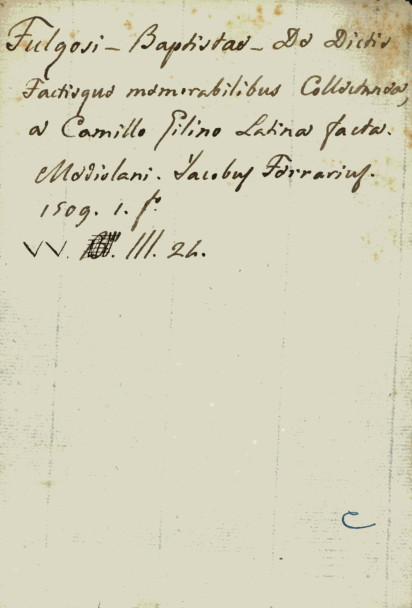 Fulgosi - Baptistae - De Dictis
Factisque memorabilibus Collectanea,
a Camillo Gilino Latina facta.
Mediolani. Jacobus Ferrarius.
1509. 1. f.º
VV. III. 24.
C